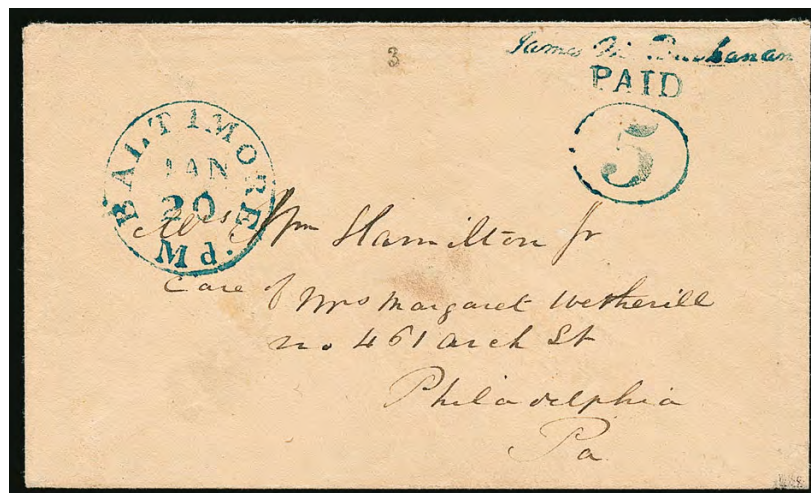 3
James M. Buchanan
PAID
5
BALTIMORE
JAN
20
Md.
Mrs Wm Hamilton Jr
Care of Mrs Margaret Wetherill
no 461 Arch St
Philadelphia
Pa